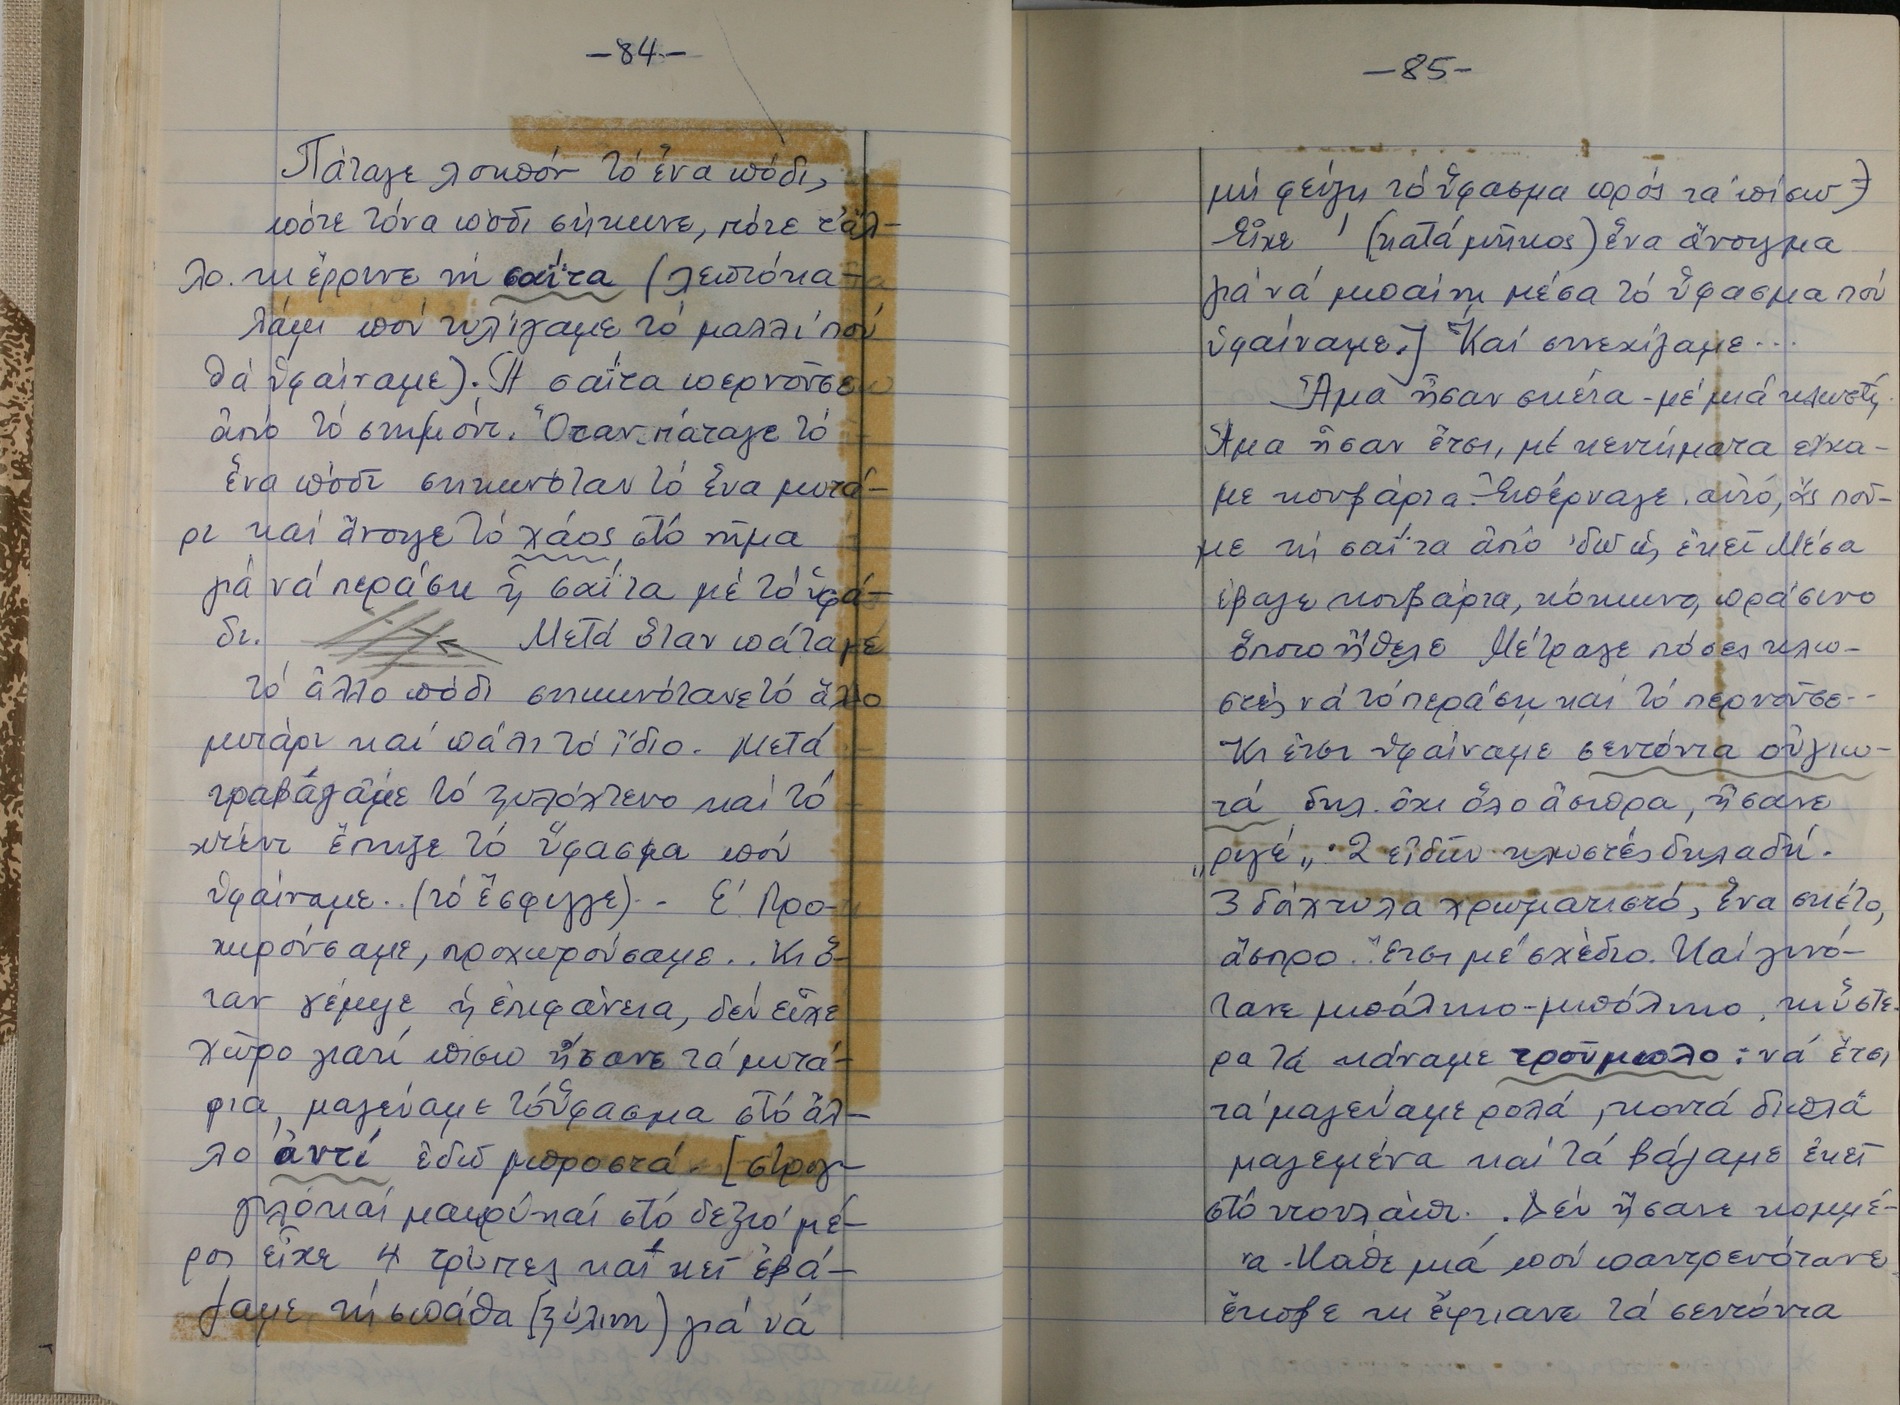 -84-
Πάταγε λοιπόν τό ἕνα πόδι,
πότε τόνα πόδι σήκωνε, πότε τ' ἄλ-
λο. κι ἔρριχνε τή σαΐτα (λεπτό κα-
λάμι πού τυλίγαμε τό μαλλί πού
θά ὑφαίναμε). Ἡ σαΐτα περνοῦσε
ἀπό τό στημόνι. Ὅταν πάταγε τό
ἕνα πόδι σηκωνόταν τό ἕνα μιτά-
ρι καί ἄνοιγε τό χάος στό νῆμα
γιά νά περάση ἡ σαΐτα μέ τό ὑφά-
δι. Μετά ὅταν πάταμέ
τό ἄλλο πόδι σηκωνότανε τό ἄλλο
μιτάρι καί πάλι τό ἴδιο. Μετά
τραβάγαμε τό ξυλόχτενο καί τό
χτένι ἔπηζε τό ὕφασμα πού
ὑφαίναμε. (τό ἔσφιγγε).. Ε! Προ-
χωρούσαμε, προχωρούσαμε.. Κι ὅ-
ταν γέμιζε ἡ ἐπιφάνεια, δέν εἶχε
χῶρο γιατί πίσω ἤσανε τά μιτά-
ρια, μαζεύαμε τό ὕφασμα στό ἄλ-
λο ἀντί ἐδῶ μπροστά. [στρογ-
γυλό καί μακρύ καί στό δεξιό μέ-
ρος εἶχε 4 τρύπες καί κεῖ ἐβά-
ζαμε τή σπάθα (ξύλινη) γιά νά
-85-
μή φεύγη τό ὕφασμα πρός τά πίσω
Εἶχε (κατά μῆκος) ἕνα ἄνοιγμα
γιά νά μπαίνη μέσα τό ὕφασμα πού
ὑφαίναμε.] Καί συνεχίζαμε...
Ἅμα ἦσαν σκέτα - μέ μιά κλωστή.
Ἅμα ἦσαν ἔτσι, μέ κεντήματα εἴχα-
με κουβάρια. Ἐπέρναγε αὐτό, ἄς ποῦ-
με τή σαΐτα ἀπό 'δῶ ὡς ἐκεῖ Μέσα
ἔβαζε κουβάρια, κόκκινο, πράσινο
ὅποιο ἤθελε Μέτραγε πόσες κλω-
στές νά τό περάση καί τό περνοῦσε..
Κι ἔτσι ὑφαίναμε σεντόνια οὐγιω-
τά δηλ. ὄχι ὅλο ἄσπρα, ἤσανε
„ριγέ„. 2 εἰδῶν κλωστές δηλαδή.
3 δάχτυλα χρωματιστό, ἕνα σκέτο,
ἄσπρο. Ἔτσι μέ σχέδιο. Καί γινό-
τανε μπόλικο-μπόλικο, κι ὕστε-
ρα τά κάναμε τρούμπολο: νά ἔτσι
τά μαζεύαμε ρολά, κοντά διπλά
μαζεμένα καί τά βάζαμε ἐκεῖ
στό ντουλάπι. Δέν ἤσανε κομμέ-
να. Κάθε μιά πού παντρευότανε
ἔκοβε κι ἔφτιανε τά σεντόνια